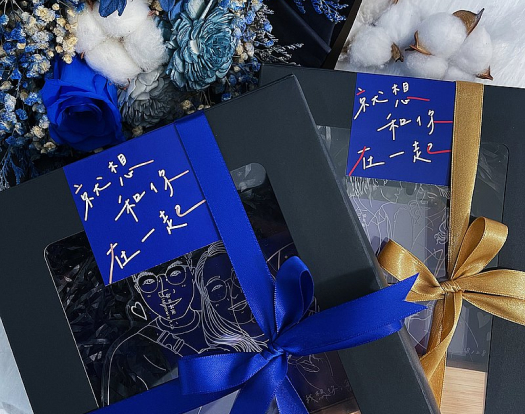 就想
和你
在一起
就想
和你
在一起